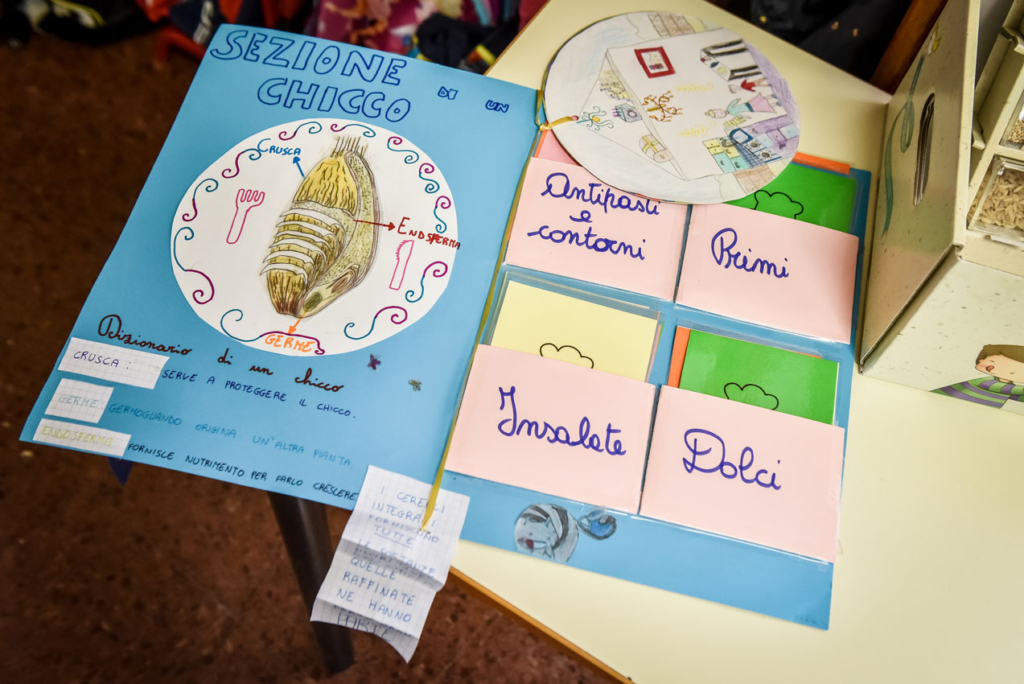 SEZIONE DI UN
CHICCO
CRUSCA
ENDOSFERMA
GERME
Dizionario di un chicco
CRUSCA: SERVE A PROTEGGERE IL CHICCO.
GERME GERMOGLIANDO ORIGINA UN'ALTRA PIANTA.
ENDOSFERMA FORNISCE NUTRIMENTO PER FARLO CRESCERE
I CEREALI
INTEGRALI
FORNISCONO
TUTTE
QUELLE
RAFFINATE
NE HANNO
Antipasti
e
contorni
Primi
Insalate
Dolci